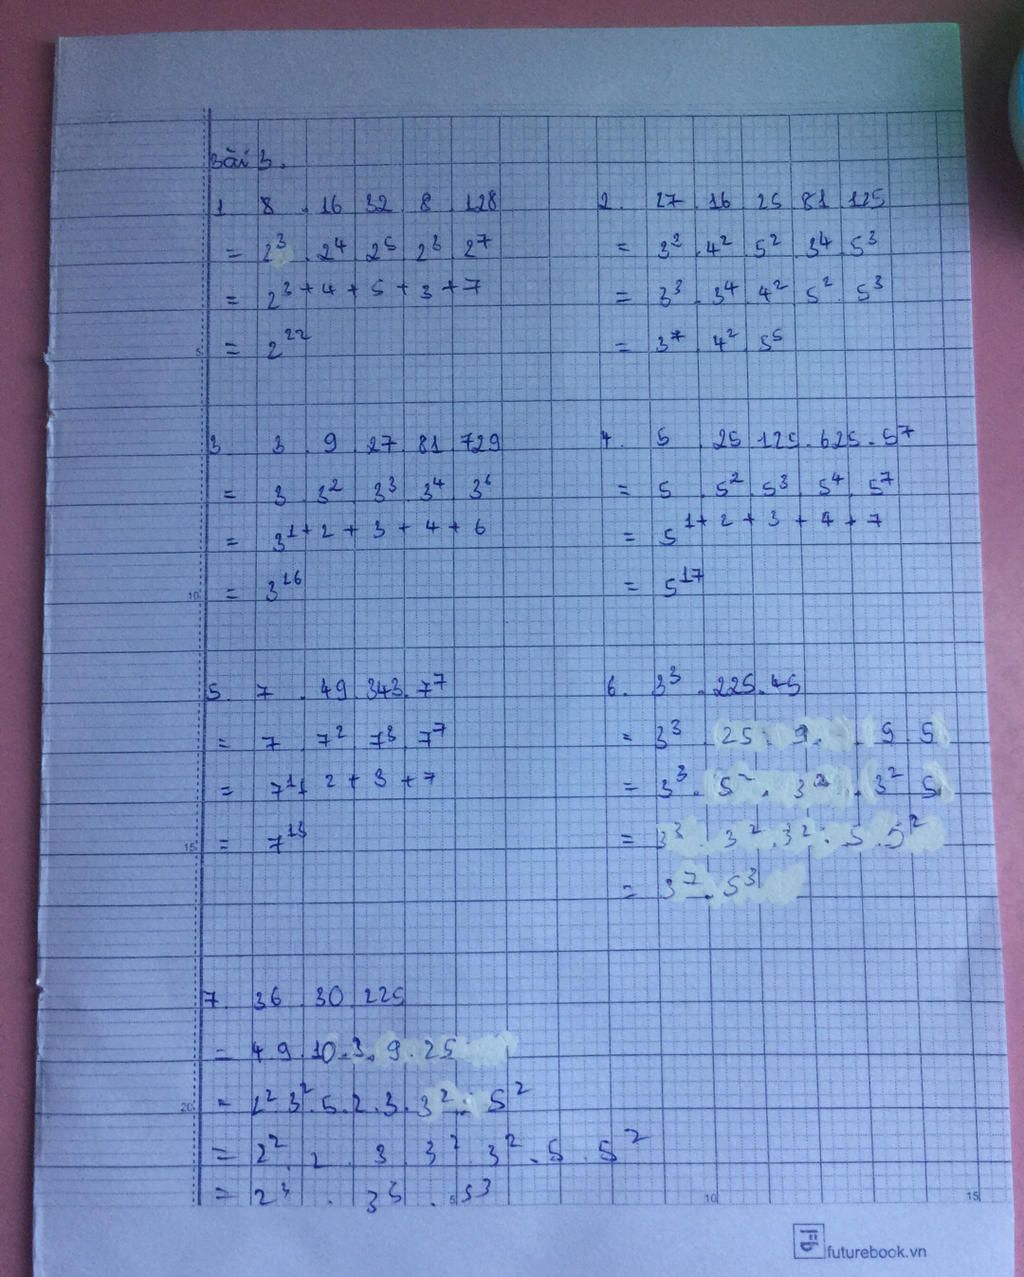 Bài 3.
1 8 . 16 . 32 . 8 . 128
= 2³ . 2⁴ . 2⁵ . 2³ . 2⁷
= 2³⁺⁴⁺⁵⁺³⁺⁷
= 2²²
2. 27 . 16 . 25 . 81 . 125
= 3³ . 4² . 5² . 3⁴ . 5³
= 3³ . 3⁴ . 4² . 5² . 5³
= 3⁷ . 4² . 5⁵
3 3 . 9 . 27 . 81 . 729
= 3 . 3² . 3³ . 3⁴ . 3⁶
= 3¹⁺²⁺³⁺⁴⁺⁶
= 3¹⁶
4. 5 . 25 . 125 . 625 . 5⁷
= 5 . 5² . 5³ . 5⁴ . 5⁷
= 5¹⁺²⁺³⁺⁴⁺⁷
= 5¹⁷
5. 7 . 49 . 343 . 7⁷
= 7 . 7² . 7³ . 7⁷
= 7¹⁺²⁺³⁺⁷
= 7¹³
6. 3³ . 225 . 45
= 3³ . (25 . 9) . (9 . 5)
= 3³ . (5² . 3²) . (3² . 5)
= 3³ . 3² . 3² . 5 . 5²
= 3⁷ . 5³
7. 36 . 30 . 225
= 4 . 9 . 10 . 3 . 9 . 25
= 2² . 3² . 5 . 2 . 3 . 3² . 5²
= 2² . 2 . 3 . 3² . 3² . 5 . 5²
= 2³ . 3⁵ . 5³
5
10
15
20
5
10
15
futurebook.vn